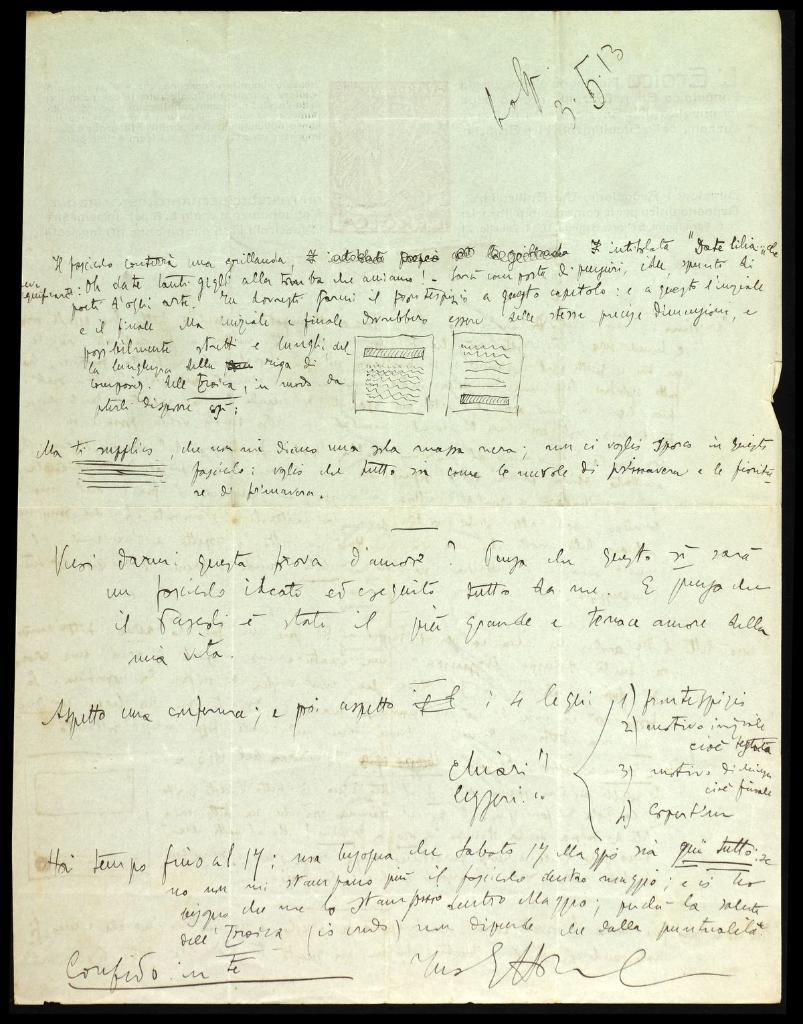 3.5.13
Il fascicolo conterrà una ghirlanda intitolata "Date lilia: che
: Oh date tanti gigli alla tomba che amiamo! - Sarà composta di pensieri, idee, spunti di
poeti d'ogni arte. Tu dovresti farmi il frontespizio a questo capitolo: e a questo l'iniziale
e il finale. Ma iniziale e finale dovrebbero essere delle stesse precise dimensioni, e
possibilmente stretti e lunghi del
la lunghezza della riga di
compos. dell'Eroica, in modo da
poterli disporre così:
Ma ti supplico, che non mi diano una sola massa nera; non ci voglio sporco in questo
fascicolo: voglio che tutto sia come le nuvole di primavera e le fioritu-
re di primavera.
Vuoi darmi questa prova d'amore? Pensa che questo sì sarà
un fascicolo ideato ed eseguito tutto da me. E pensa che
il Pascoli è stato il più grande e tenace amore della
mia vita.
Aspetto una conferma; e poi aspetto i 4 legni
1) frontespizio
2) motivo iniziale
cioè testata
3) motivo di chiusa
cioè finale
4) copertina
Chiari!!
leggeri!!
Hai tempo fino al 17; ma bisogna che Sabato 17 Maggio sia qui tutto: se
no non mi stampano più il fascicolo dentro maggio; e io ho
bisogno che me lo stampino dentro Maggio; perché la salute
dell'Eroica (io credo) non dipende che dalla puntualità.
Confido in te